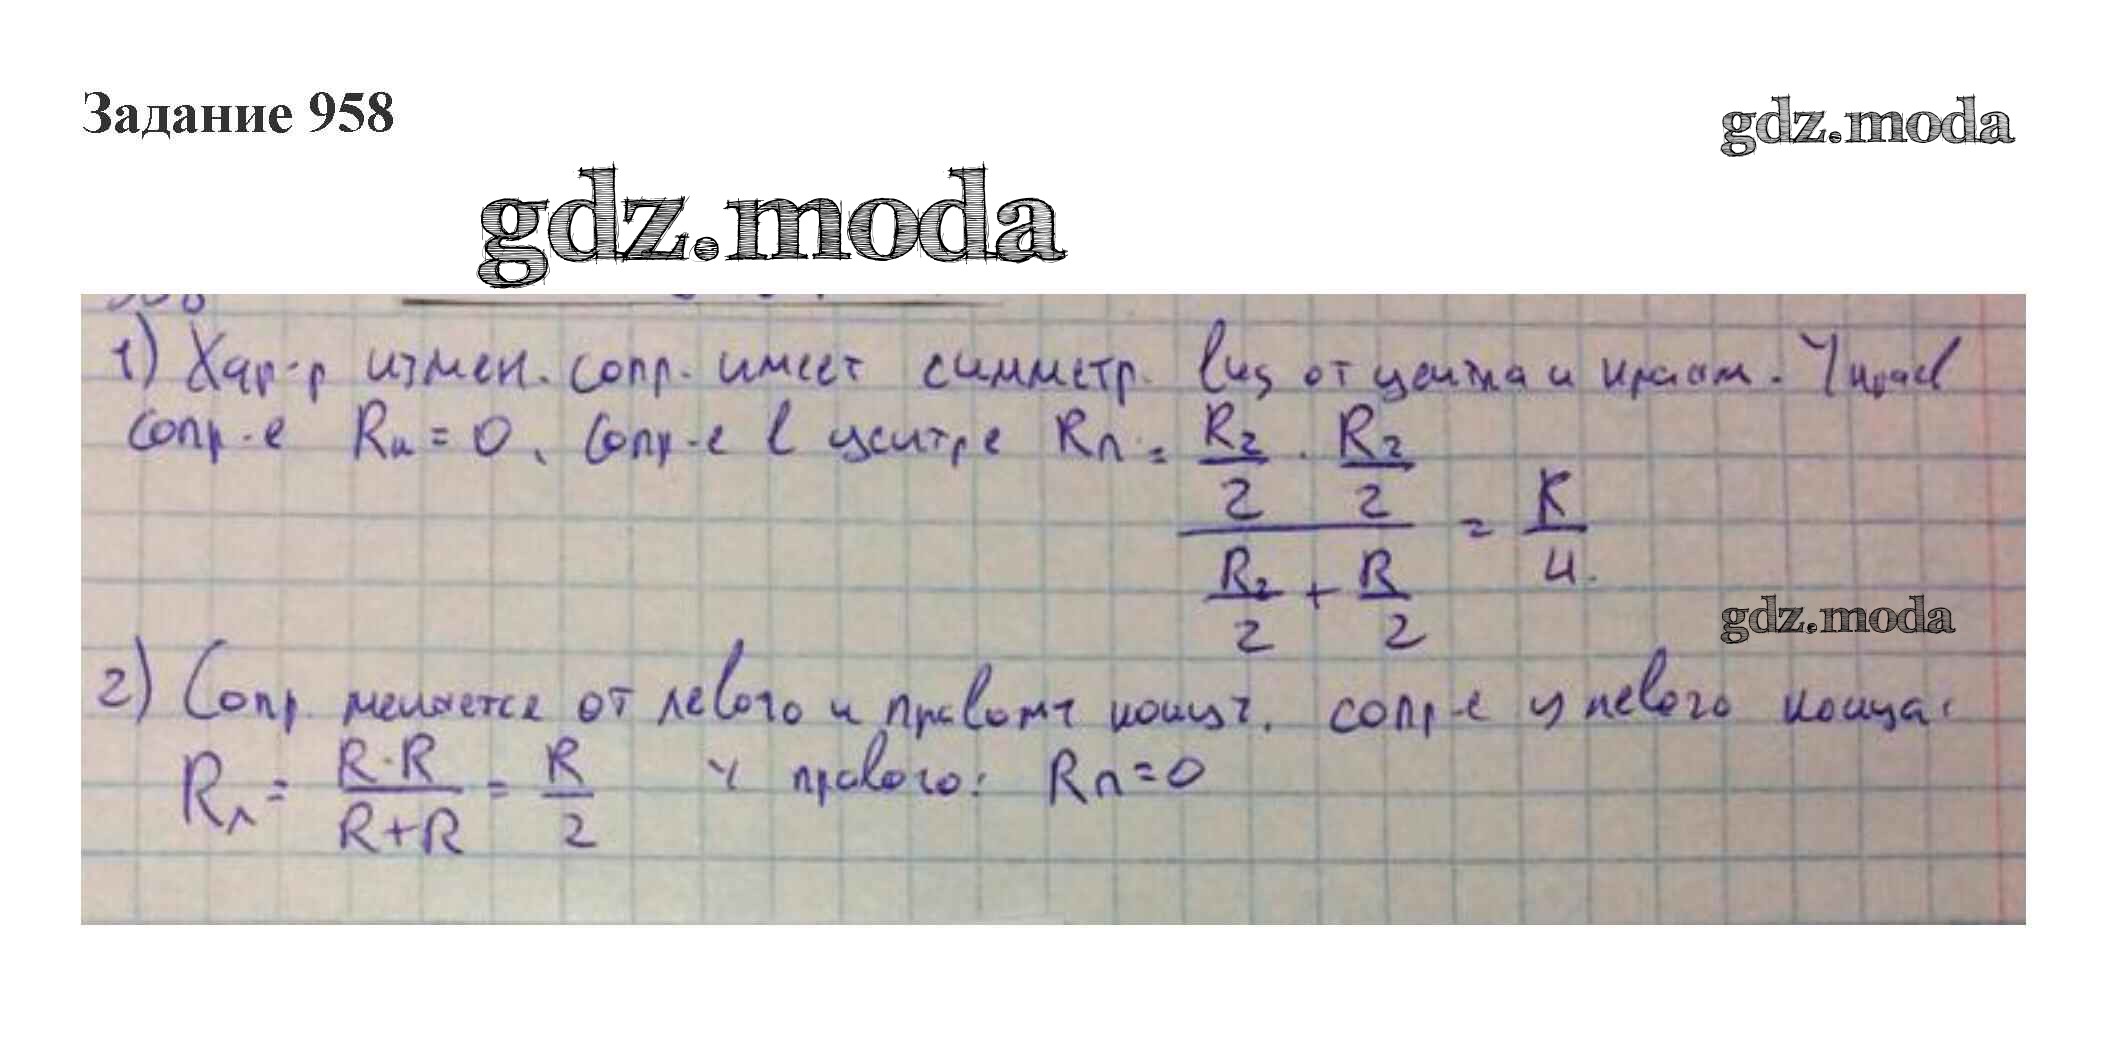 Задание 958
gdz.moda
gdz.moda
1) Хар-р измен. сопр. имеет симметр. вид от центра и краям. У краев
сопр-е Rк = 0, сопр-е в центре Rп = (R2/2 · R2/2)/(R2/2 + R/2) = R/4.
gdz.moda
2) Сопр. меняется от левого к правому концу. сопр-е у левого конца:
Rл = (R·R)/(R+R) = R/2 у правого: Rп = 0